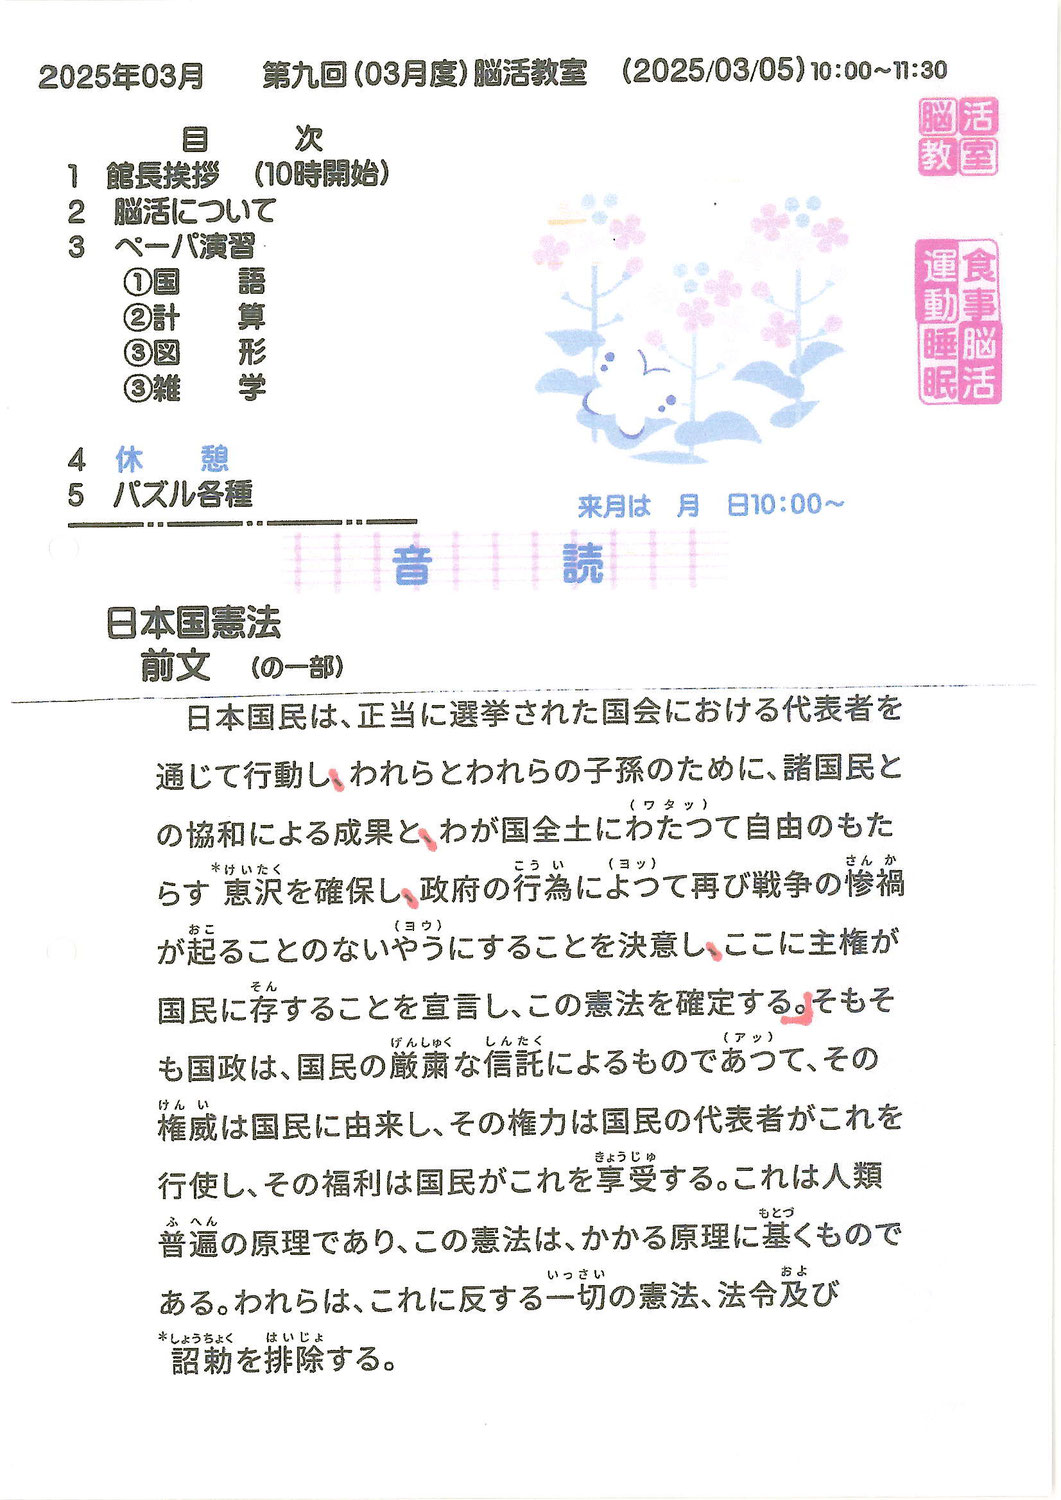 2025年03月　第九回(03月度)脳活教室　(2025/03/05)10:00~11:30
脳活
教室
目　次
1　館長挨拶　(10時開始)
2　脳活について
3　ペーパ演習
①国　語
②計　算
③図　形
③雑　学
4　休　憩
5　パズル各種
食事脳活
運動睡眠
来月は　月　日10:00~
音　読
日本国憲法
前文　(の一部)
日本国民は、正当に選挙された国会における代表者を
通じて行動し、われらとわれらの子孫のために、諸国民と
(ワタッ)
の協和による成果と、わが国全土にわたつて自由のもた
*けいたく　こうい　(ヨッ)　さんか
らす恵沢を確保し、政府の行為によつて再び戦争の惨禍
おこ　(ヨウ)
が起ることのないやうにすることを決意し、ここに主権が
そん
国民に存することを宣言し、この憲法を確定する。そもそ
げんしゅく　しんたく　(アッ)
も国政は、国民の厳粛な信託によるものであつて、その
けんい
権威は国民に由来し、その権力は国民の代表者がこれを
きょうじゅ
行使し、その福利は国民がこれを享受する。これは人類
ふへん　もとづ
普遍の原理であり、この憲法は、かかる原理に基くもので
いっさい　およ
ある。われらは、これに反する一切の憲法、法令及び
*しょうちょく　はいじょ
詔勅を排除する。